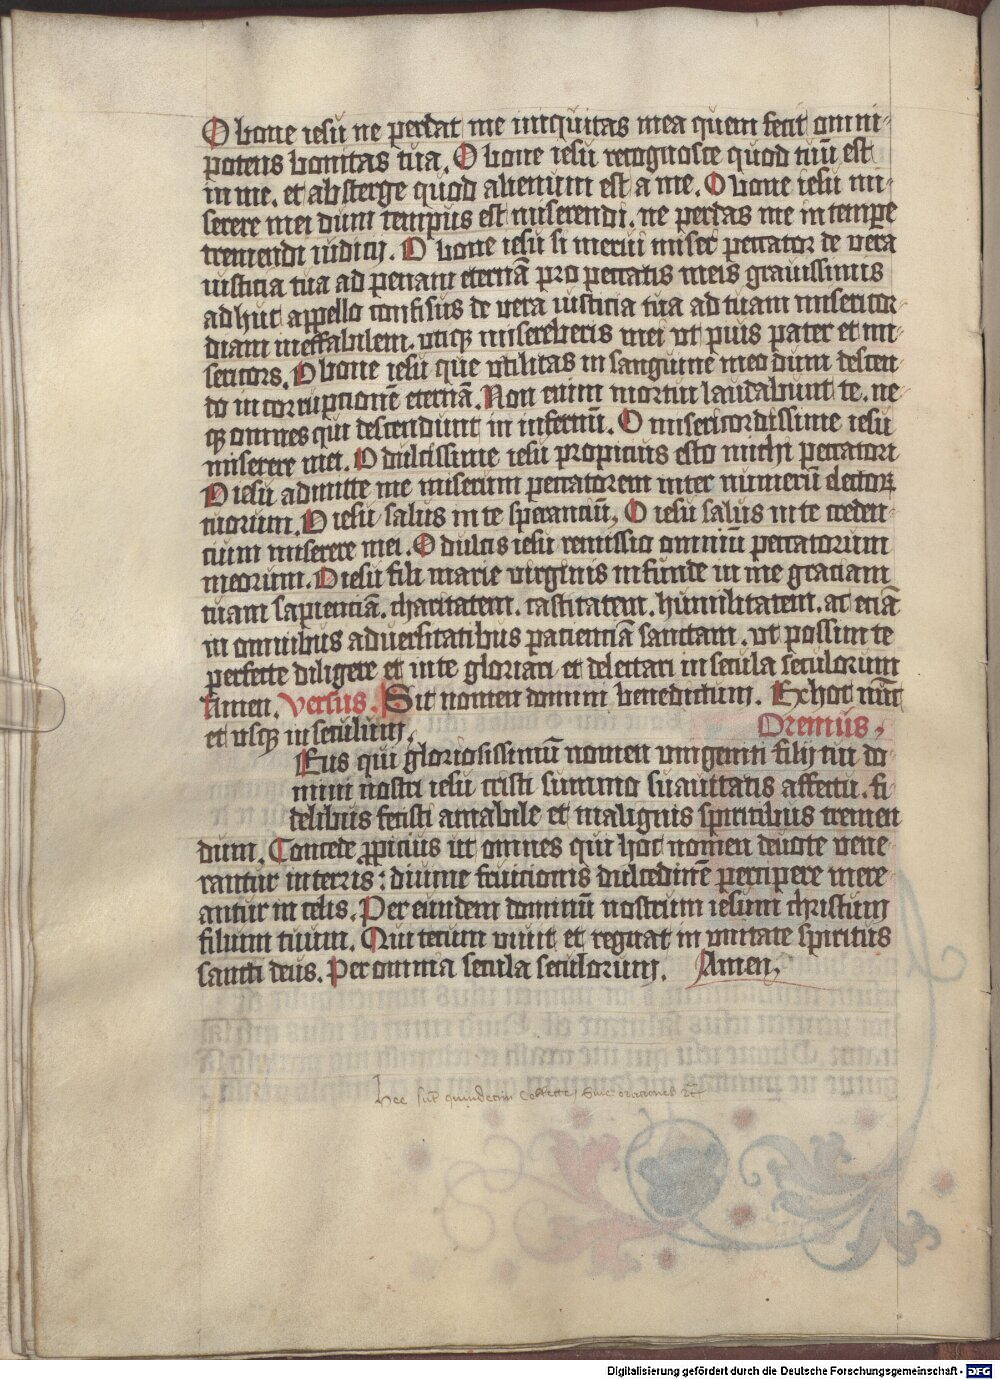 O bone iesu ne perdat me iniquitas mea quem fecit omni-
potens bonitas tua. O bone iesu recognosce quod tuū est
in me. et absterge quod alienum est a me. O bone iesu mi-
serere mei dum tempus est miserendi. ne perdas me in tempe
tremendi iudicij. O bone iesu si merui miser peccator de vera
iusticia tua ad penam eternā pro peccatis meis grauissimis
adhuc appello confisus de vera iusticia tua ad tuam misericor-
diam ineffabilem. vtiqȝ misereberis mei vt pius pater et mi-
sericors. O bone iesu que vtilitas in sanguine meo dum descen-
do in corruptionē eternā. Non enim mortui laudabunt te. ne-
qȝ omnes qui descendunt in infernū. O misericordissime iesu
miserere mei. O dulcissime iesu propicius esto michi peccatori
O iesu admitte me miserum peccatorem inter numerū electoꝝ
tuorum. O iesu salus in te speranciū, O iesu salus in te creden-
cium miserere mei. O dulcis iesu remissio omniū peccatorum
meorum. O iesu fili marie virginis infunde in me graciam
tuam sapienciā. charitatem. castitatem. humilitatem. ac eciā
in omnibus aduersitatibus pacienciā sanctam. vt possim te
perfecte diligere et in te gloriari et delectari in secula seculorum
Amen. Versus. Sit nomen domini benedictum. Ex hoc nūc
et vsqȝ in seculum.
Oremus,
Eus qui gloriosissimū nomen vnigeniti filij tui do-
mini nostri iesu cristi summo suauitatis affectu. fi-
delibus fecisti amabile et malignis spiritibus tremen
dum. Concede ꝓpicius ut omnes qui hoc nomen deuote vene-
rantur in terris: diuine fruicionis dulcedinē percipere mere-
antur in celis. Per eundem dominū nostrum iesum christum
filium tuum. Qui tecum viuit et regnat in vnitate spiritus
sancti deus. Per omnia secula seculorum. Amen,
hec sūt quindecim collecte siue orationes
Digitalisierung gefördert durch die Deutsche Forschungsgemeinschaft - DFG